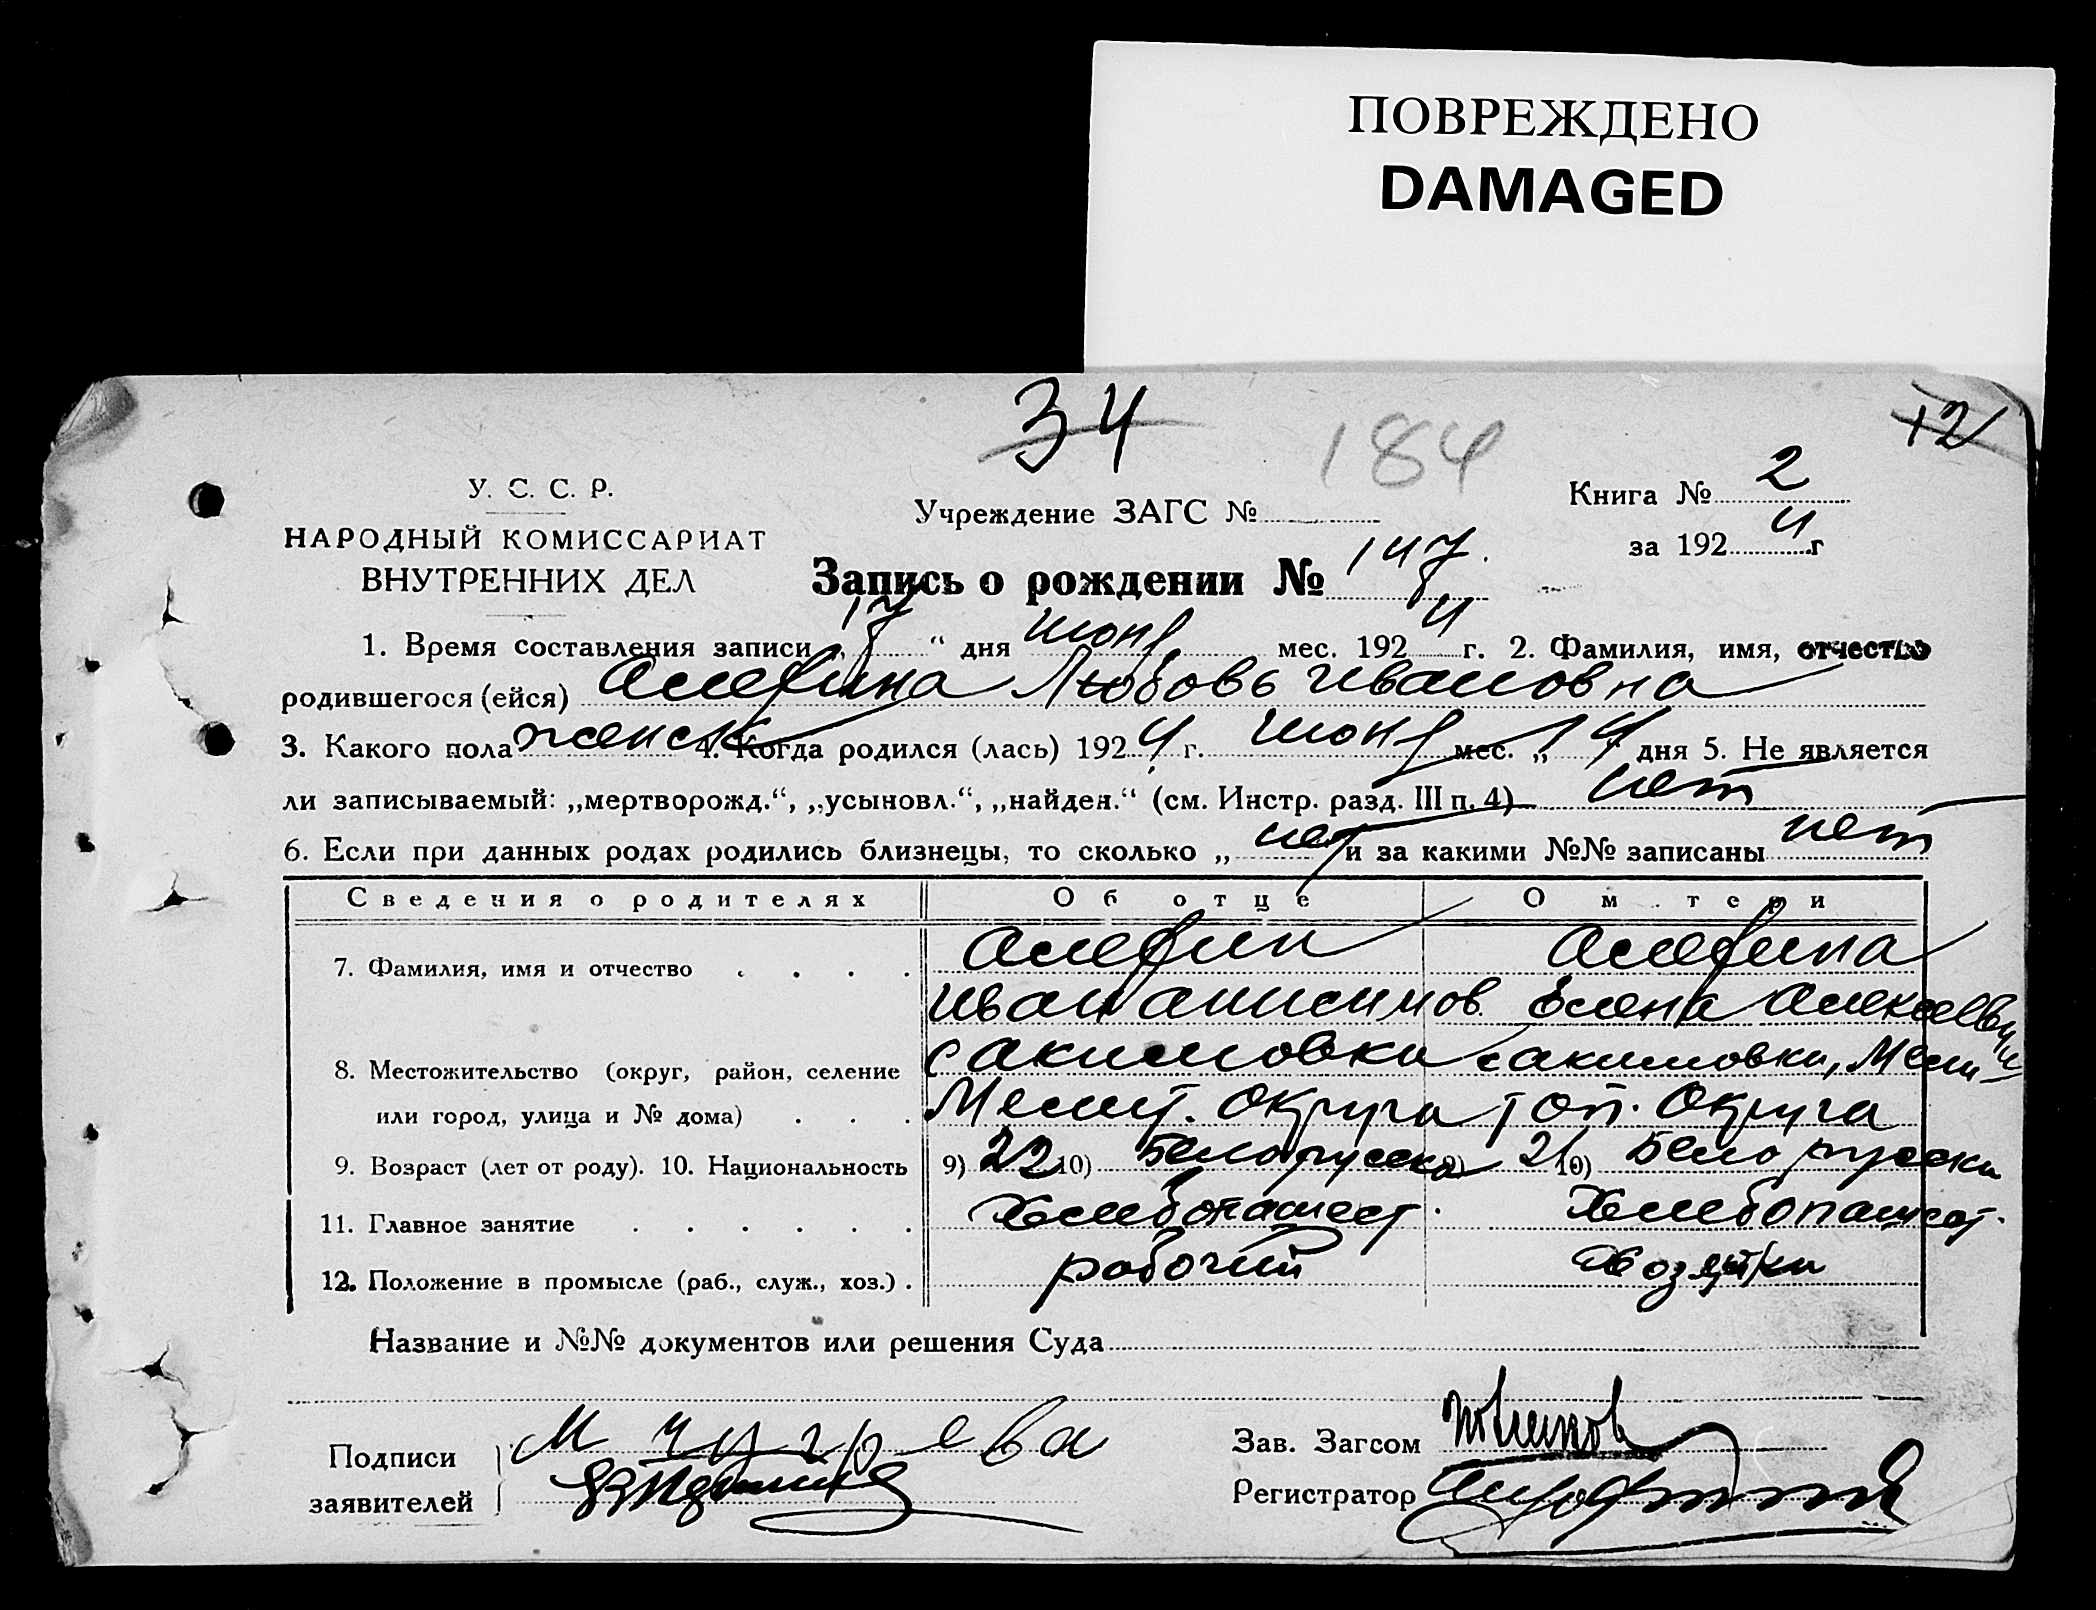 ПОВРЕЖДЕНО
DAMAGED
34
184
12
У. С. С. Р.
НАРОДНЫЙ КОМИССАРИАТ
ВНУТРЕННИХ ДЕЛ
Учреждение ЗАГС №
Книга № 2
за 1924 г
Запись о рождении № 147
1. Время составления записи „ 17 “ дня июня мес. 1924 г. 2. Фамилия, имя, отчество
родившегося (ейся) Алефина Любовь Ивановна
3. Какого пола женск 4. Когда родился (лась) 1924 г. июня мес. „ 14 дня 5. Не является
ли записываемый: „мертворожд.“, „усыновл.“, „найден.“ (см. Инстр. разд. III п. 4) нет
6. Если при данных родах родились близнецы, то сколько „ нет и за какими №№ записаны нет
Сведения о родителях Об отце О м тери
7. Фамилия, имя и отчество Алефин Алефина
Иван Анисимов. Елена Алексеевна
8. Местожительство (округ, район, селение с Акимовка с Акимовка, Мели-
или город, улица и № дома) Мелит. Округа топ. Округа
9. Возраст (лет от роду). 10. Национальность 9) 22 10) Белорусск 9) 21 10) Белорусска
11. Главное занятие Хлебопашест. Хлебопашест.
12. Положение в промысле (раб., служ., хоз.) рабочий Хозяйка
Название и №№ документов или решения Суда
Подписи
заявителей
М
Зав. Загсом
Регистратор